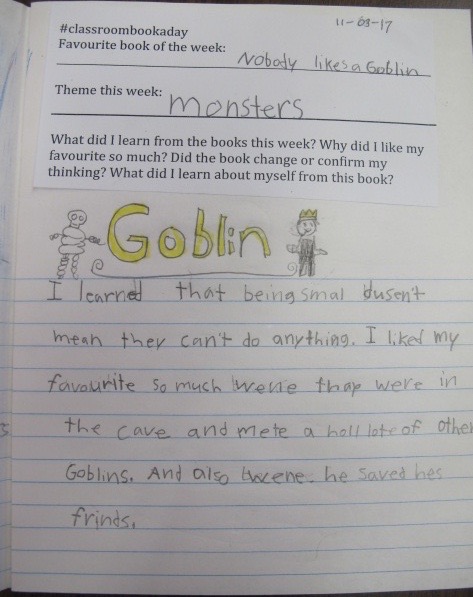 11-03-17
#classroombookaday
Favourite book of the week:
Nobody likes a Goblin
Theme this week:
monsters
What did I learn from the books this week? Why did I like my
favourite so much? Did the book change or confirm my
thinking? What did I learn about myself from this book?
Goblin
I learned that being smal dusent
mean they can't do anything. I liked my
favourite so much wene thay were in
the cave and mete a holl lote of other
Goblins. And also wene he saved hes
frinds.